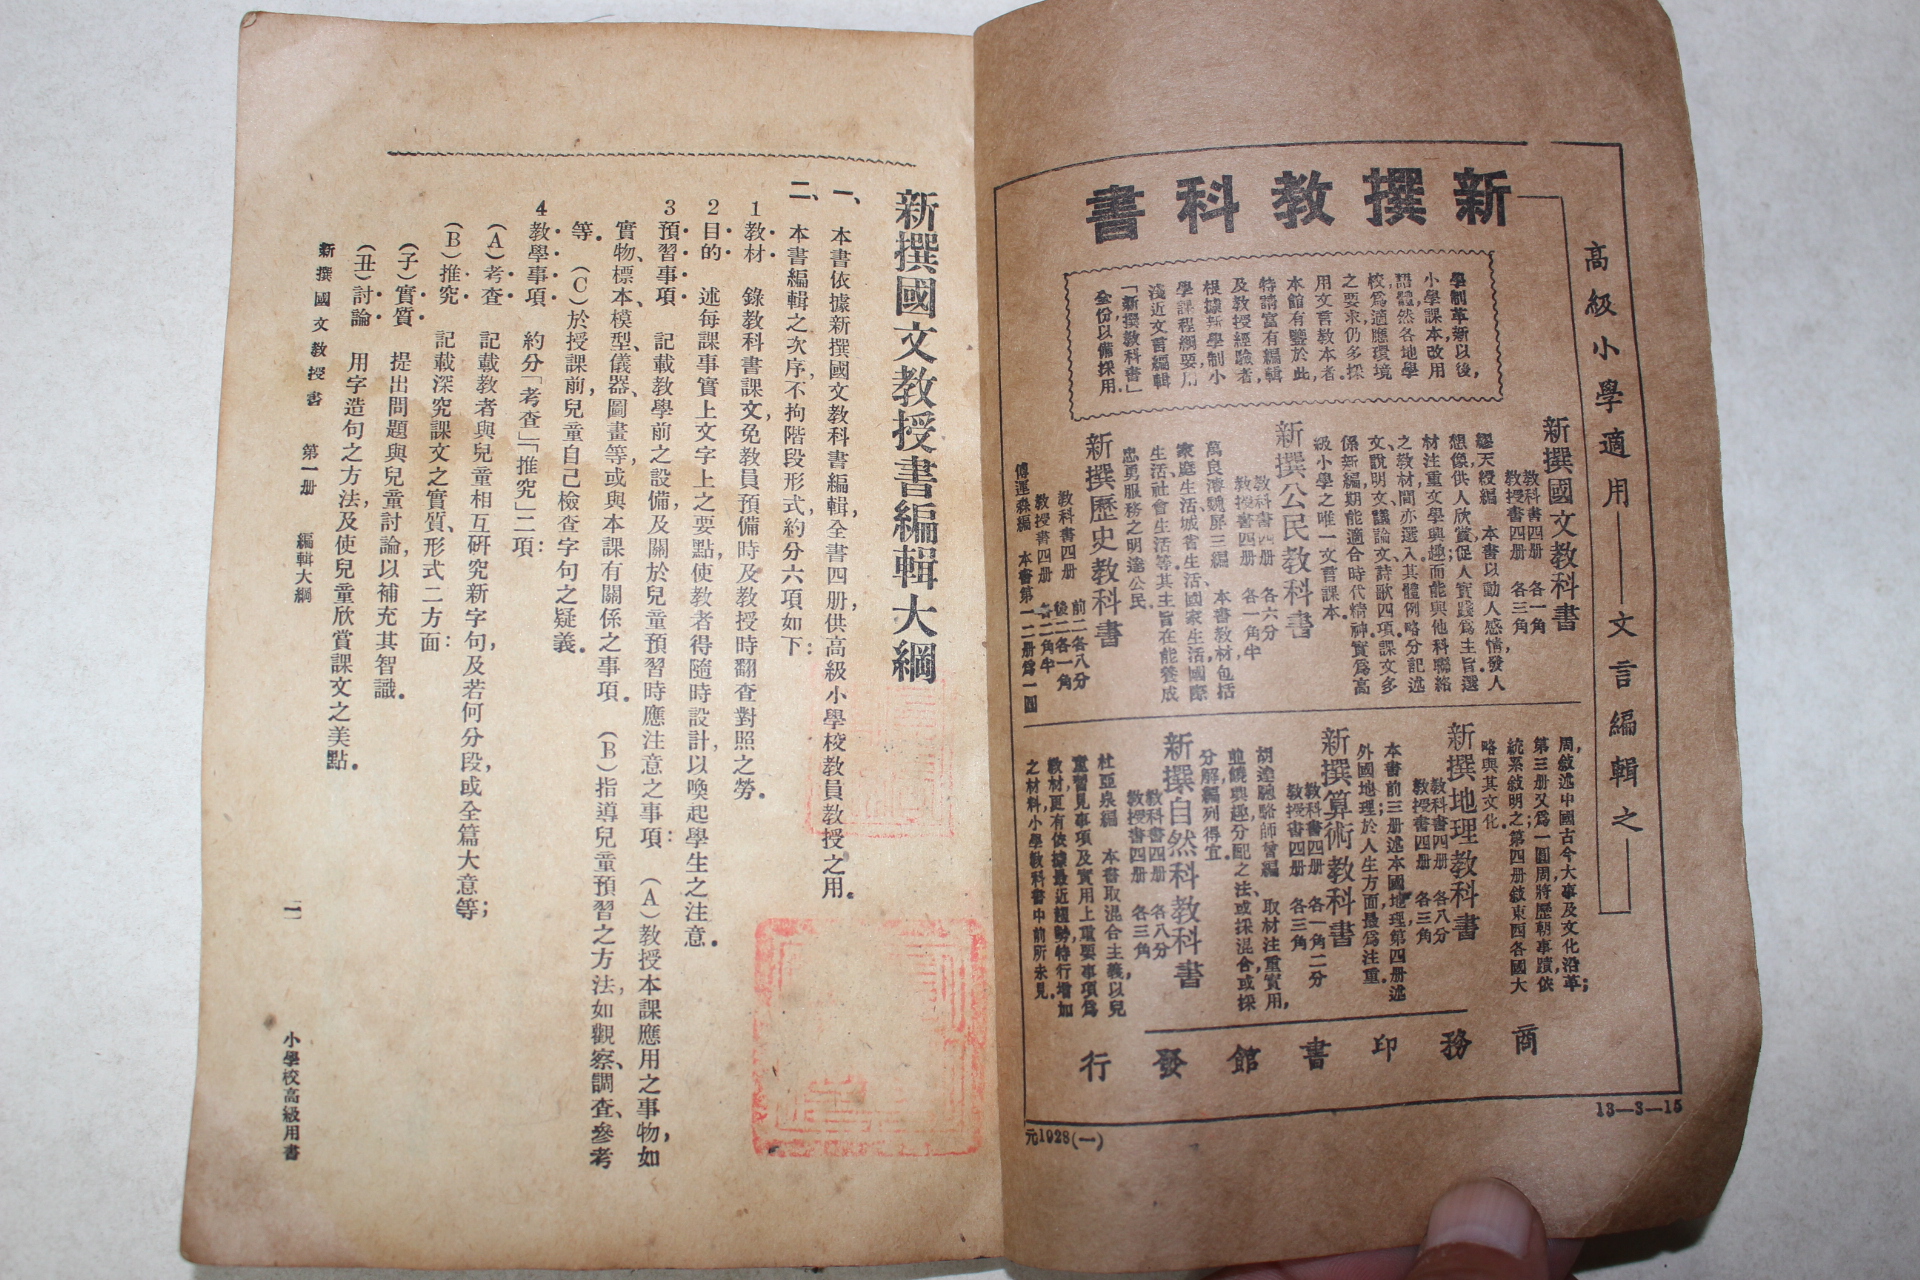 高級小學適用——文言編輯之——
新撰教科書
學制革新以後,
小學課本改用
語體,然各地學
校爲適應環境
之要求,仍多採
用文言教本者.
本館有鑒於此,
特請富有編輯
及教授經驗者,
根據新學制小
學課程綱要,用
淺近文言編輯
「新撰教科書」
全份,以備採用.
新撰國文教科書
教科書四册 各一角
教授書四册 各三角
繆天綬編 本書以動人感情,發人
想像,供人欣賞,促人實踐爲主旨;選
材注重文學興趣而能與他科聯絡
之教材間亦選入.其體例略分記述
文、說明文、議論文、詩歌四項.課文多
係新編,期能適合時代精神,實爲高
級小學之唯一文言課本.
新撰公民教科書
教科書四册 各六分
教授書四册 各一角半
萬良濬魏屏三編 本書教材包括
家庭生活,城省生活,國家生活,國際
生活,社會生活等,其主旨在能養成
忠勇服務之明達公民.
新撰歷史教科書
教科書四册 前二各八分 後二各一角
教授書四册 各二角半
傅運森編 本書第一二册爲一圓
周,敍述中國古今大事及文化沿革;
第三册又爲一圓周,將歷朝事蹟,依
統系敍明之;第四册敍東西各國大
略與其文化.
新撰地理教科書
教科書四册 各八分
教授書四册 各三角
本書前三册述本國地理,第四册述
外國地理;於人生方面最爲注重.
新撰算術教科書
教科書四册 各一角二分
教授書四册 各三角
胡達聰駱師曾編 取材注重實用,
並饒興趣,分配之法,或採混合,或採
分解,編列得宜.
新撰自然科教科書
教科書四册 各八分
教授書四册 各三角
杜亞泉編 本書取混合主義,以兒
童習見事項及實用上重要事項爲
教材,更有依據最近趨勢特行增加
之材料,小學教科書中前所未見.
商務印書館發行
13—3—15
元1928(一)
新撰國文教授書編輯大綱
一、本書依據新撰國文教科書編輯,全書四册,供高級小學校教員教授之用.
二、本書編輯之次序,不拘階段形式,約分六項如下:
1 教材 錄教科書課文,免教員預備時及教授時翻查對照之勞.
2 目的 述每課事實上文字上之要點,使教者得隨時設計以喚起學生之注意.
3 預習事項 記載教學前之設備,及關於兒童預習時應注意之事項: (A)教授本課應用之事物,如
實物、標本、模型、儀器、圖畫等,或與本課有關係之事項. (B)指導兒童預習之方法,如觀察、調查、參考
等. (C)於授課前,兒童自己檢查字句之疑義.
4 教學事項 約分「考查」「推究」二項:
(A)考查 記載教者與兒童相互研究新字句,及若何分段,或全篇大意等;
(B)推究 記載深究課文之實質、形式二方面:
(子)實質 提出問題與兒童討論,以補充其智識.
(丑)討論 用字造句之方法,及使兒童欣賞課文之美點.
新撰國文教授書 第一册 編輯大綱 一 小學校高級用書